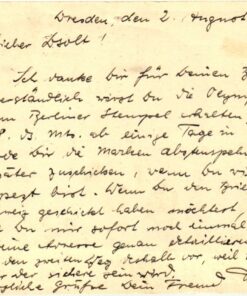 Dresden, den 2. August
ieber Dsolt!
Ich danke Dir für Deinen
erständlich wirst Du die Olym
m Berliner Stempel erhalten,
ab einige Tage in
de Dir die Marken abstempel
päter zuschicken, wenn Du
bist. Wenn Du den
geschickt haben möchtest
Du mir sofort noch einmal
eine Adresse genau
den zweiten Weg deshalb vor, weil
der sichere sein wird.
zliche Grüße Dein Freund